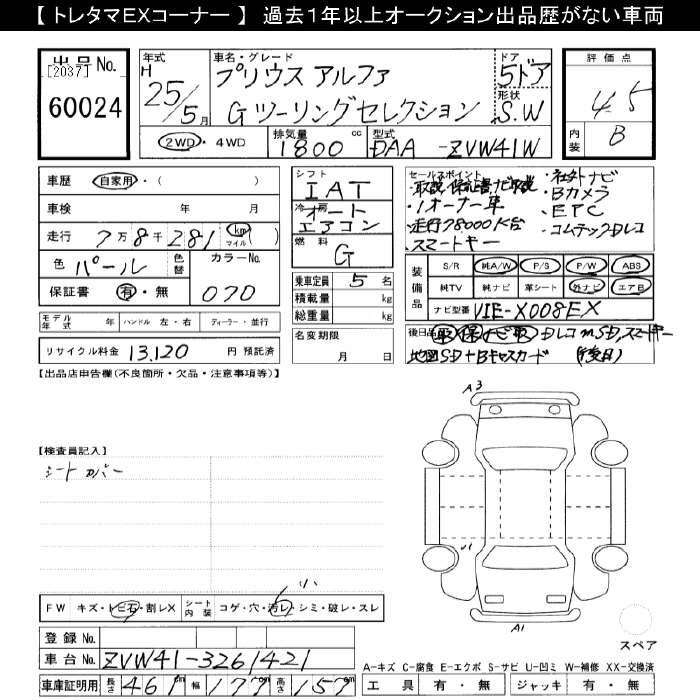 【 トレタマEXコーナー 】 過去1年以上オークション出品歴がない車両
出品No.
[2037]
60024
年式 H 25/5月
車名・グレード
プリウス アルファ
Gツーリングセレクション
ドア
5ドア
形状
S.W
評価点
4.5
内装
B
2WD・4WD
排気量 1800 cc
型式 DAA -ZVW41W
車歴 自家用・( )
車検 年 月
走行 7万8千281 km マイル ( )
色 パール 色替 カラーNo.
保証書 有・無 070
シフト
IAT
冷房
オート
エアコン
燃料
G
乗車定員 5 名
積載量 kg
総重量 kg
名変期限
月 日
セールスポイント
・取説,保証書,ナビ取説
・1オーナー車
・走行78000K台
・スマートキー
・社外ナビ
・Bカメラ
・ETC
・コムテックDレコ
装備品
S/R 純A/W P/S P/W ABS
純TV 純ナビ 革シート 外ナビ エアB
ナビ型番 VIE-X008EX
後日品 取 保 ナビ取 Dレコ mSD,スマーキー
地図SD+Bキャスカード (後日)
モデル年式 年 ハンドル 左・右 ディーラー・並行
リサイクル料金 13,120 円 預託済
【出品店申告欄(不良箇所・欠品・注意事項等)】
【検査員記入】
シートカバー
A3
A1
スペア
FW キズ・トビ石・割レX シート内装 コゲ・穴・汚レ・シミ・破レ・スレ
登録 No.
車台 No. ZVW41-3261421
車庫証明用 長さ 461 cm 幅 177 cm 高さ 157 cm
A-キズ C-腐食 E-エクボ S-サビ U-凹ミ W-補修 XX-交換済
工具 有・無 ジャッキ 有・無